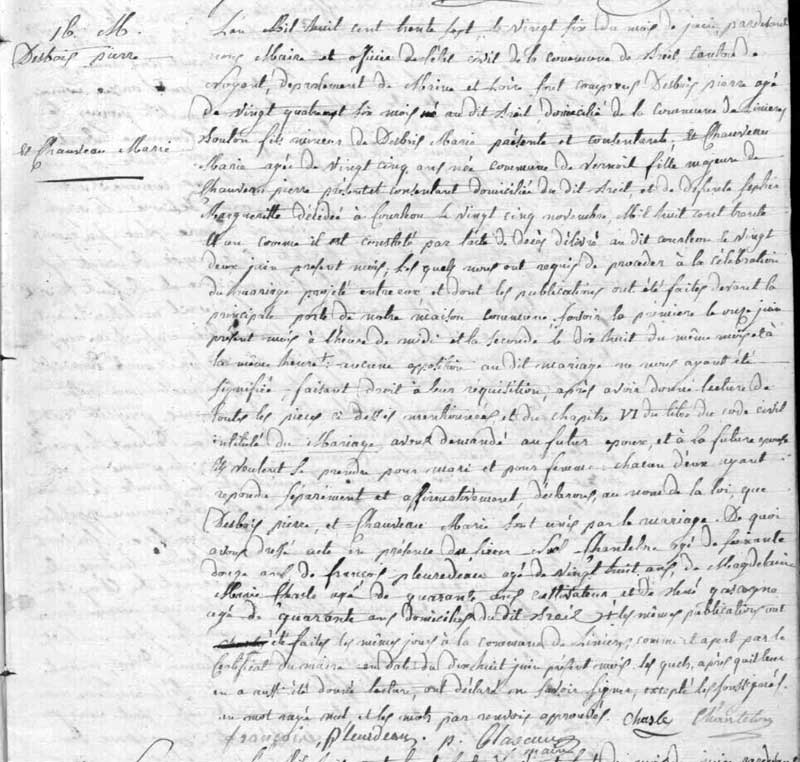 16. M.
Desbois pierre
et Chauveau Marie
L'an Mil huit cent trente sept, le vingt six du mois de juin pardevant
nous Maire et officier de l'état civil de la commune de Breil, canton de
Noyant, département de Maine et Loire sont comparus Desbois pierre agé
de vingt quatre six mois né au dit Breil domicilié de la commune de Linieres
Bouton fils mineur de Desbois Marie présente et consentante, et Chauveau
Marie agée de vingt cinq ans née commune de Vernoil fille majeure de
Chauveau pierre présent et consentant domiciliée du dit Breil et de défunte
Margueritte décédée à Courleon le vingt cinq novembre, Mil huit cent trente
un comme il est constaté par l'acte de décès délivré au dit Courleon le vingt
deux juin présent mois; Les quels nous ont requis de proceder à la célébration
du mariage projeté entre eux et dont les publications ont été faites devant la
principale porte de notre maison commune, savoir la premiere le onze juin
présent mois à l'heure de midi et la seconde le dix huit du même mois et à
la même heure; aucune opposition au dit mariage ne nous ayant été
signifiée faisant droit à leur réquisition, après avoir donné lecture de
toutes les pieces ci dessus mentionnées et du chapitre VI du titre du code civil
intitulé du Mariage, avons demandé au futur epoux, et à la future epouse
s'ils veulent se prendre pour mari et pour femme, chacun d'eux ayant
repondu séparément et affirmativement, déclarons, au nom de la loi, que
Desbois pierre, et Chauveau Marie sont unis par le mariage. De quoi
avons dressé acte en présence de agé de soixante
douze ans de françois pleurdeau agé de vingt huit ans, de Magdelaine
Marie Charle agé de quarante ans cultivateur et de René gascogne
agé de quarante ans domiciliés du dit Breil et les mêmes publications ont
été faites les mêmes jours à la commune de Linieres comme il apert par le
certificat du maire en date du dix huit juin présent mois. les quels, après qu'il leur
en a aussi été donné lecture, ont déclaré ne savoir signer, excepté les soussignés.
un mot rayé nul et les mots par renvois approuvés. Charle Chantelou
françois pleurdeau. p.
maire